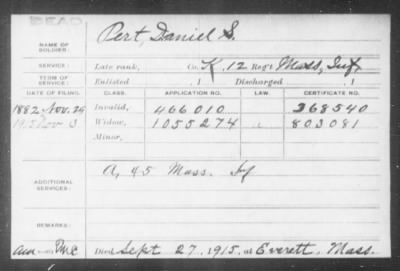 DEAD
NAME OF SOLDIER: Pert, Daniel S.
SERVICE: Late rank, Co. K, 12 Reg't Mass, Inf
TERM OF SERVICE: Enlisted , 1 Discharged , 1
DATE OF FILING. CLASS. APPLICATION NO. LAW. CERTIFICATE NO.
1882 Nov. 24 Invalid, 466010 368540
1915 Nov 3 Widow, 1055274 803081
Minor,
ADDITIONAL SERVICES: A, 45 Mass. Inf
REMARKS:
Died Sept 27, 1915, at Everett, Mass.